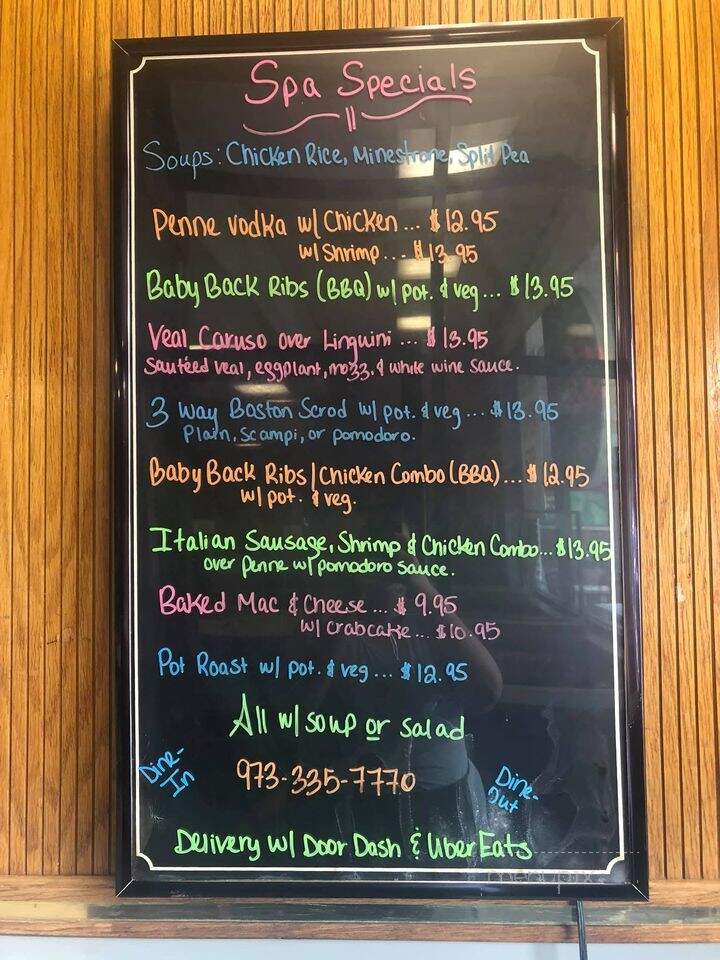 Spa Specials
Soups: Chicken Rice, Minestrone, Split Pea
Penne Vodka w/ Chicken ... $12.95
w/ Shrimp ... $13.95
Baby Back Ribs (BBQ) w/ pot. & veg ... $13.95
Veal Caruso over Linguini ... $13.95
Sautéed veal, eggplant, mozz. & white wine sauce.
3 Way Boston Scrod w/ pot. & veg ... $13.95
Plain, Scampi, or pomodoro.
Baby Back Ribs | Chicken Combo (BBQ) ... $12.95
w/ pot. & veg.
Italian Sausage, Shrimp & Chicken Combo... $13.95
over penne w/ pomodoro sauce.
Baked Mac & Cheese ... $9.95
w/ Crabcake ... $10.95
Pot Roast w/ pot. & veg ... $12.95
All w/ soup or salad
Dine-In
973-335-7770
Dine-Out
Delivery w/ Door Dash & Uber Eats